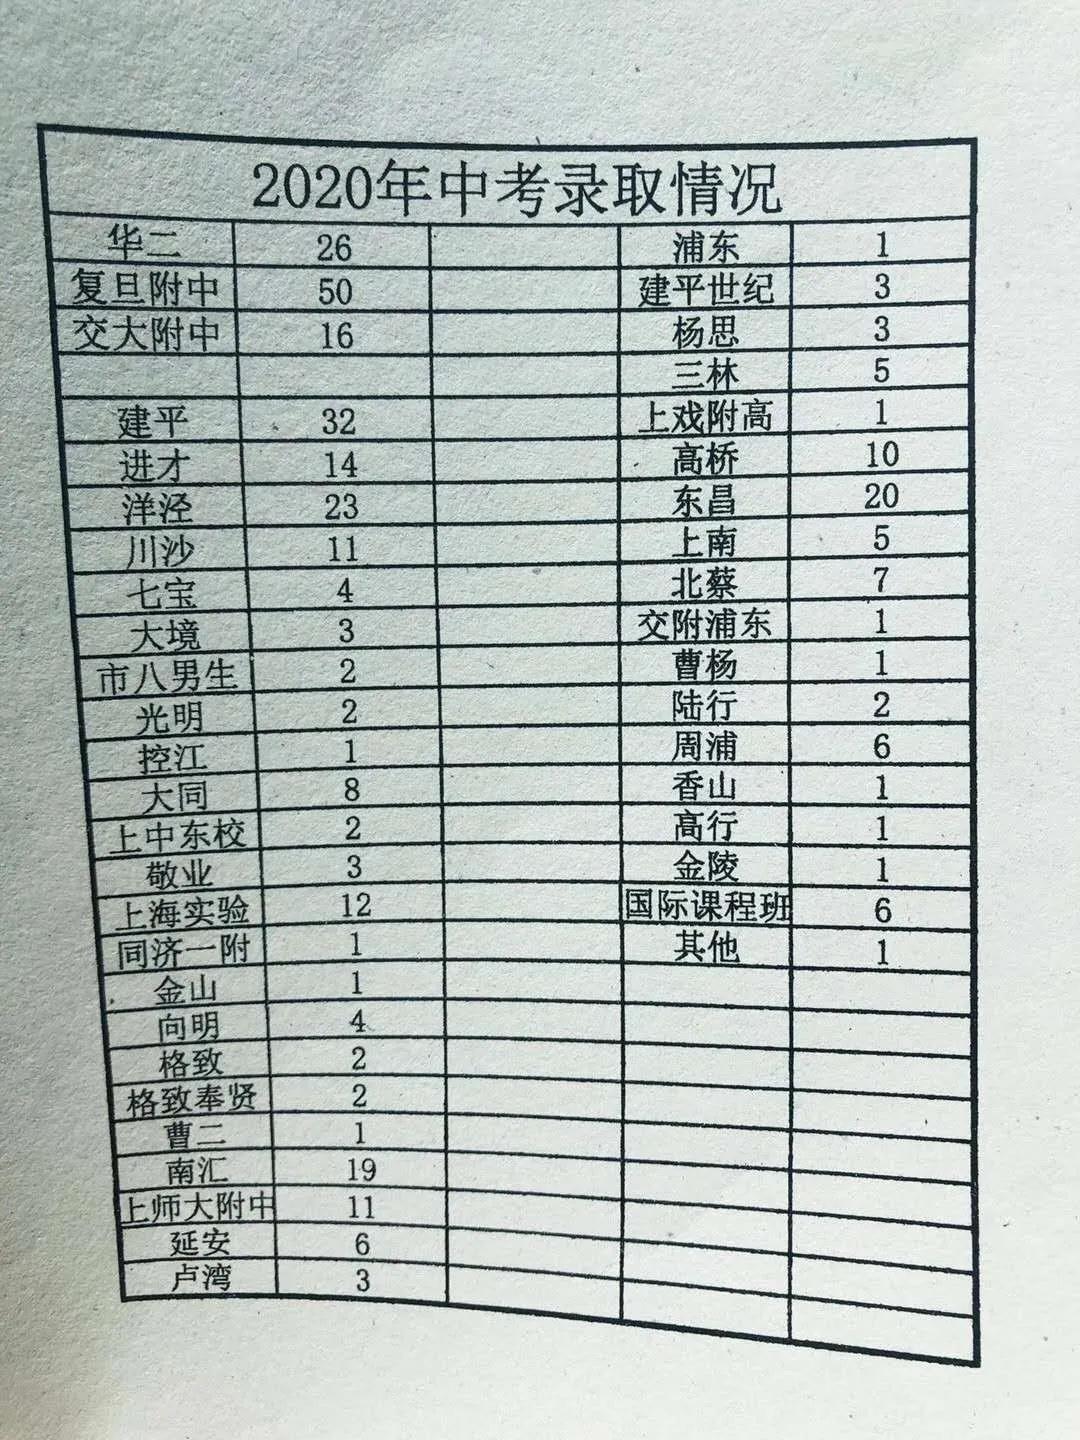 2020年中考录取情况
华二 26 浦东 1
复旦附中 50 建平世纪 3
交大附中 16 杨思 3
三林 5
建平 32 上戏附高 1
进才 14 高桥 10
洋泾 23 东昌 20
川沙 11 上南 5
七宝 4 北蔡 7
大境 3 交附浦东 1
市八男生 2 曹杨 1
光明 2 陆行 2
控江 1 周浦 6
大同 8 香山 1
上中东校 2 高行 1
敬业 3 金陵 1
上海实验 12 国际课程班 6
同济一附 1 其他 1
金山 1
向明 4
格致 2
格致奉贤 2
曹二 1
南汇 19
上师大附中 11
延安 6
卢湾 3